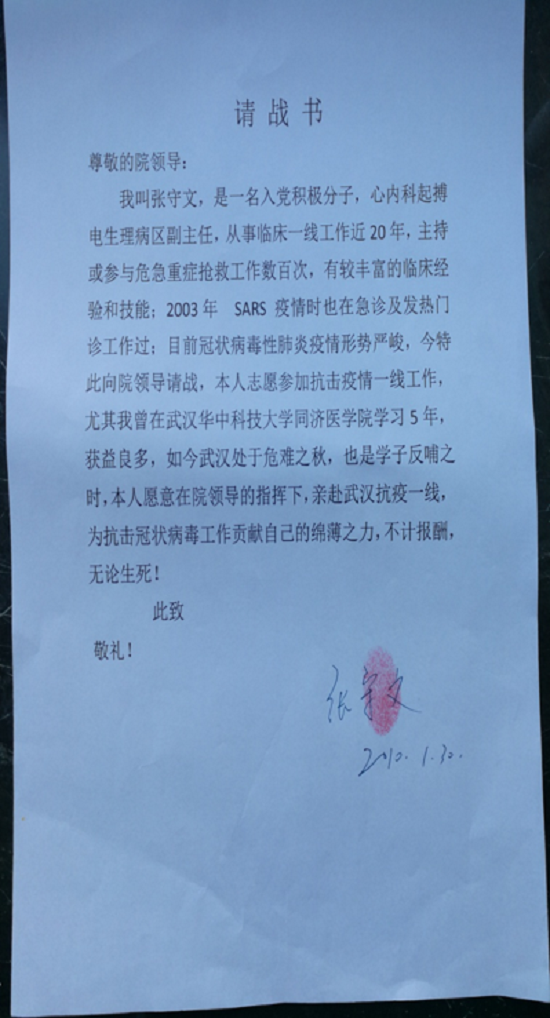 请战书
尊敬的院领导：
我叫张守文，是一名入党积极分子，心内科起搏
电生理病区副主任，从事临床一线工作近20年，主持
或参与危急重症抢救工作数百次，有较丰富的临床经
验和技能；2003年 SARS 疫情时也在急诊及发热门
诊工作过；目前冠状病毒性肺炎疫情形势严峻，今特
此向院领导请战，本人志愿参加抗击疫情一线工作，
尤其我曾在武汉华中科技大学同济医学院学习5年，
获益良多，如今武汉处于危难之秋，也是学子反哺之
时，本人愿意在院领导的指挥下，亲赴武汉抗疫一线，
为抗击冠状病毒工作贡献自己的绵薄之力，不计报酬，
无论生死！
此致
敬礼！
张守文
2020.1.30.